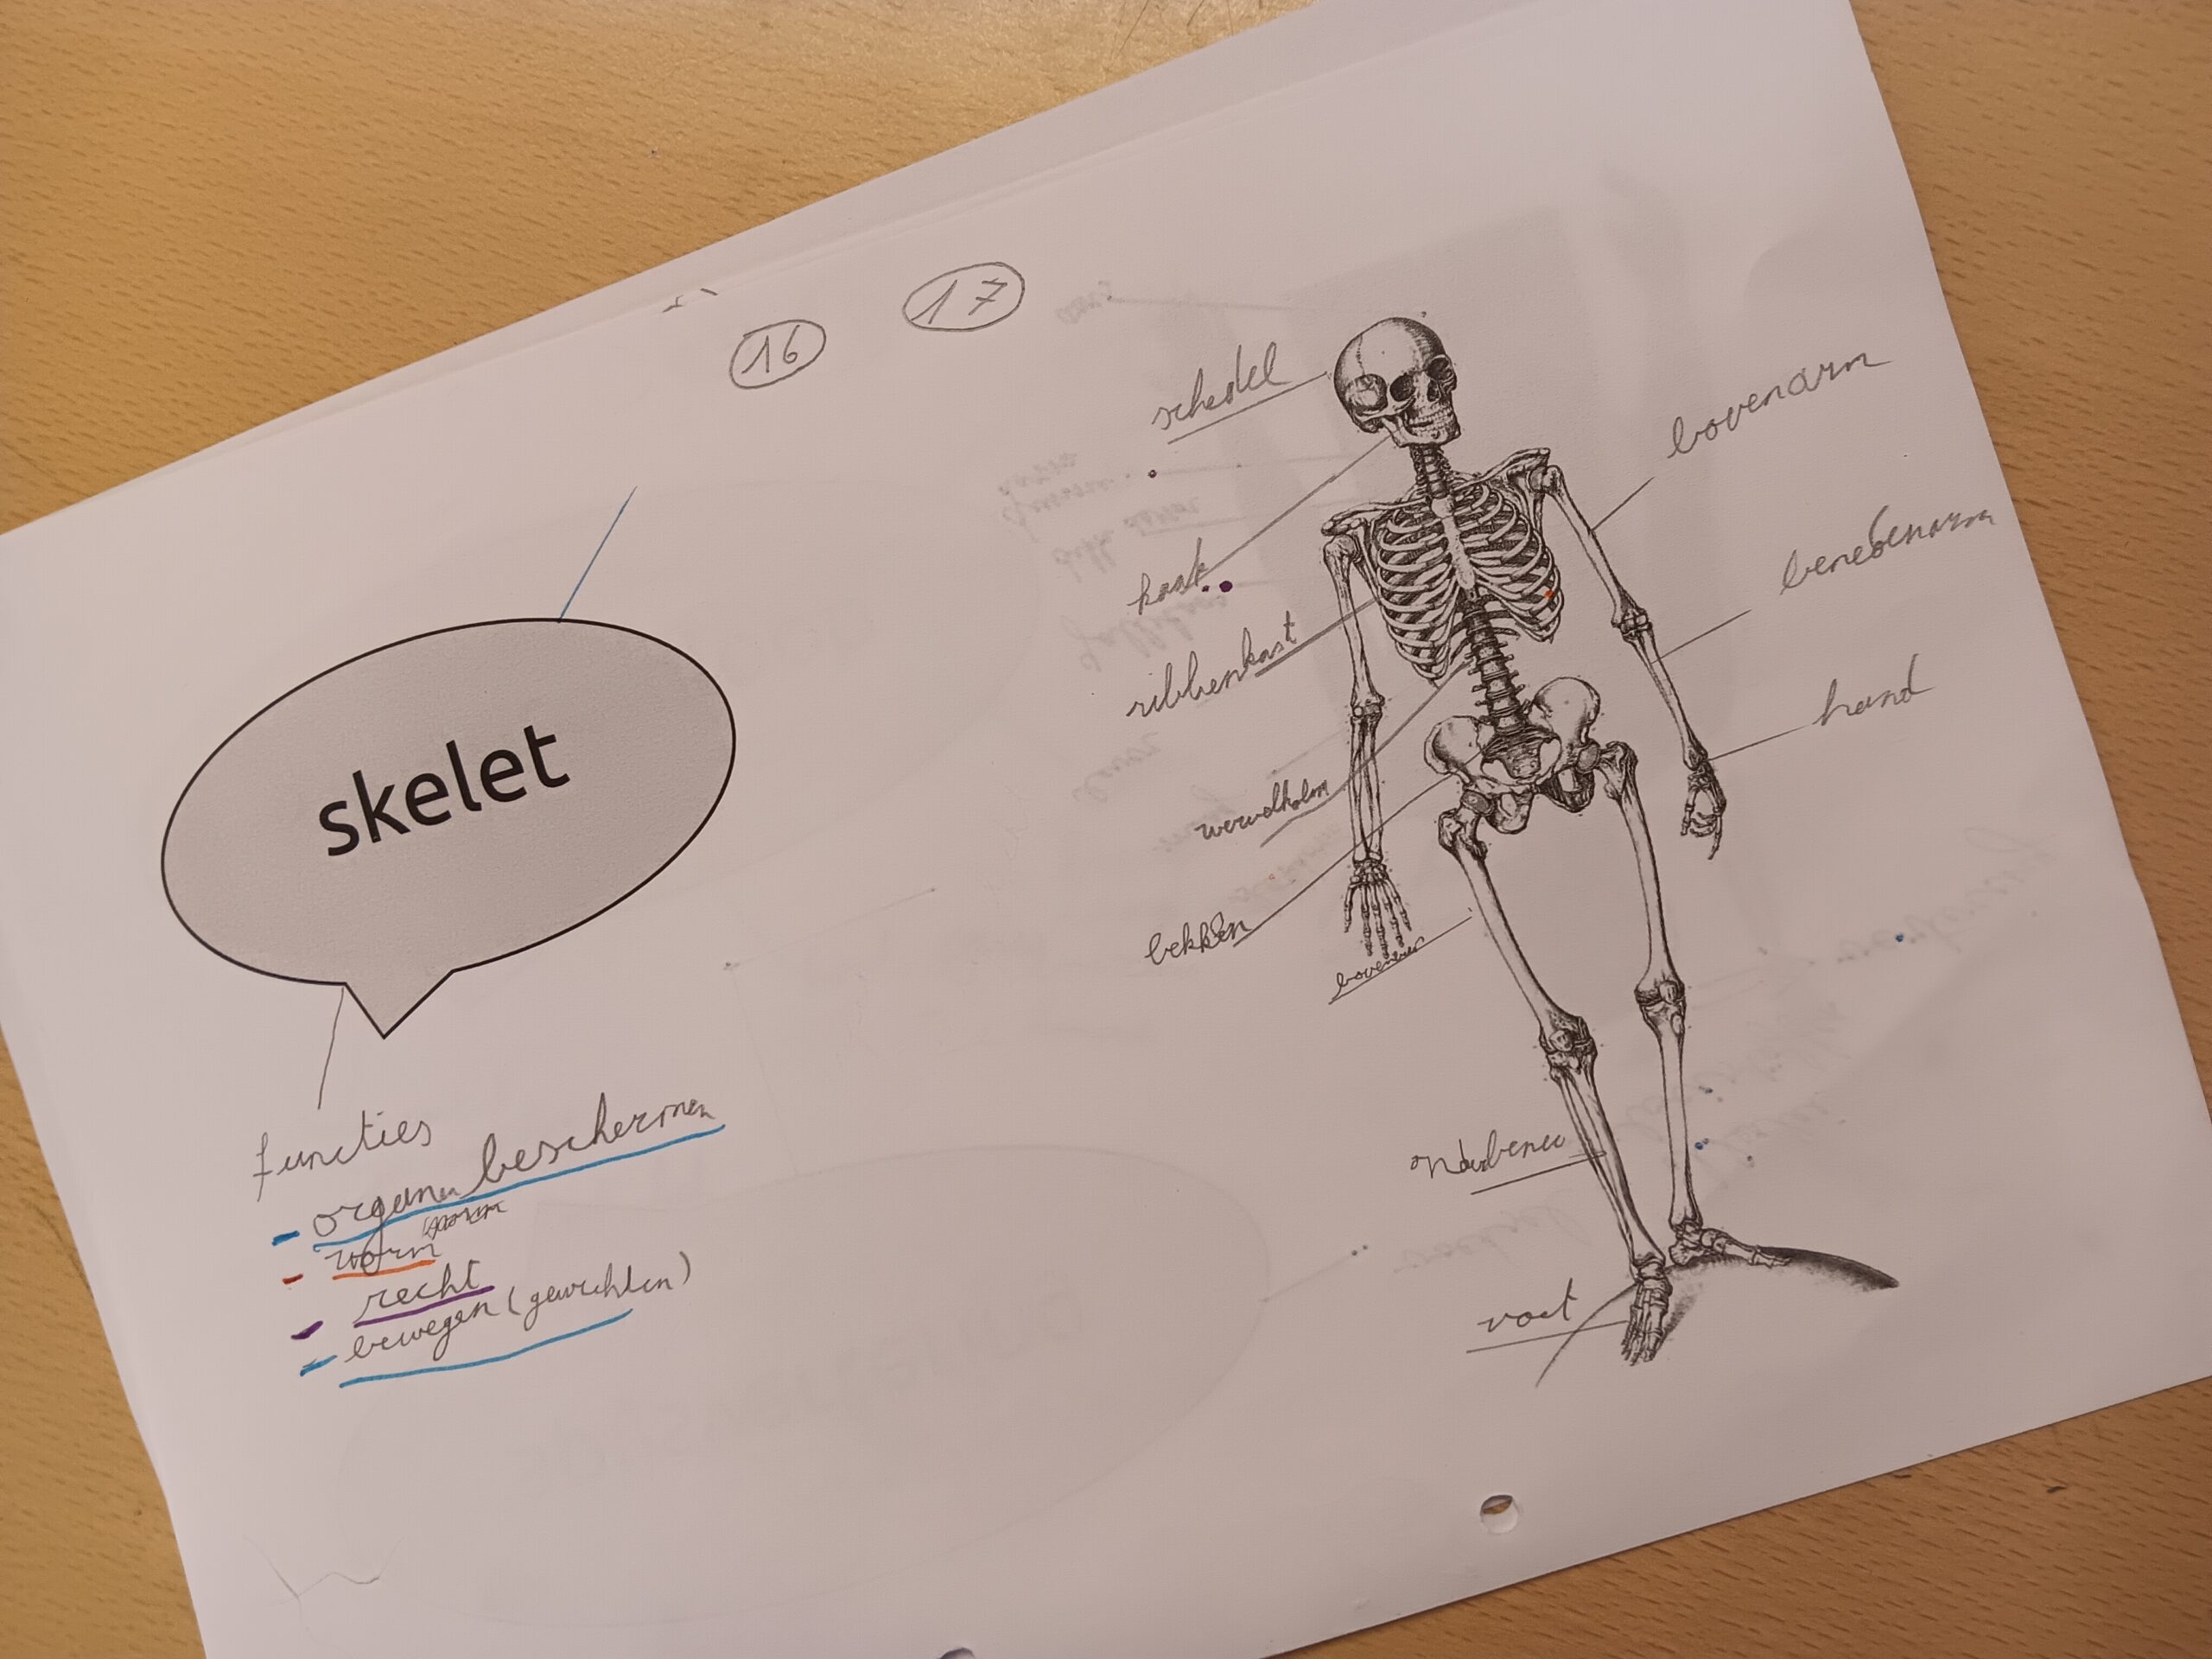 16
17
skelet
functies
- organen beschermen
- vorm
- recht
- bewegen (gewrichten)
schedel
kaak
ribbenkast
bekken
voet
bovenarm
benedenarm
hand